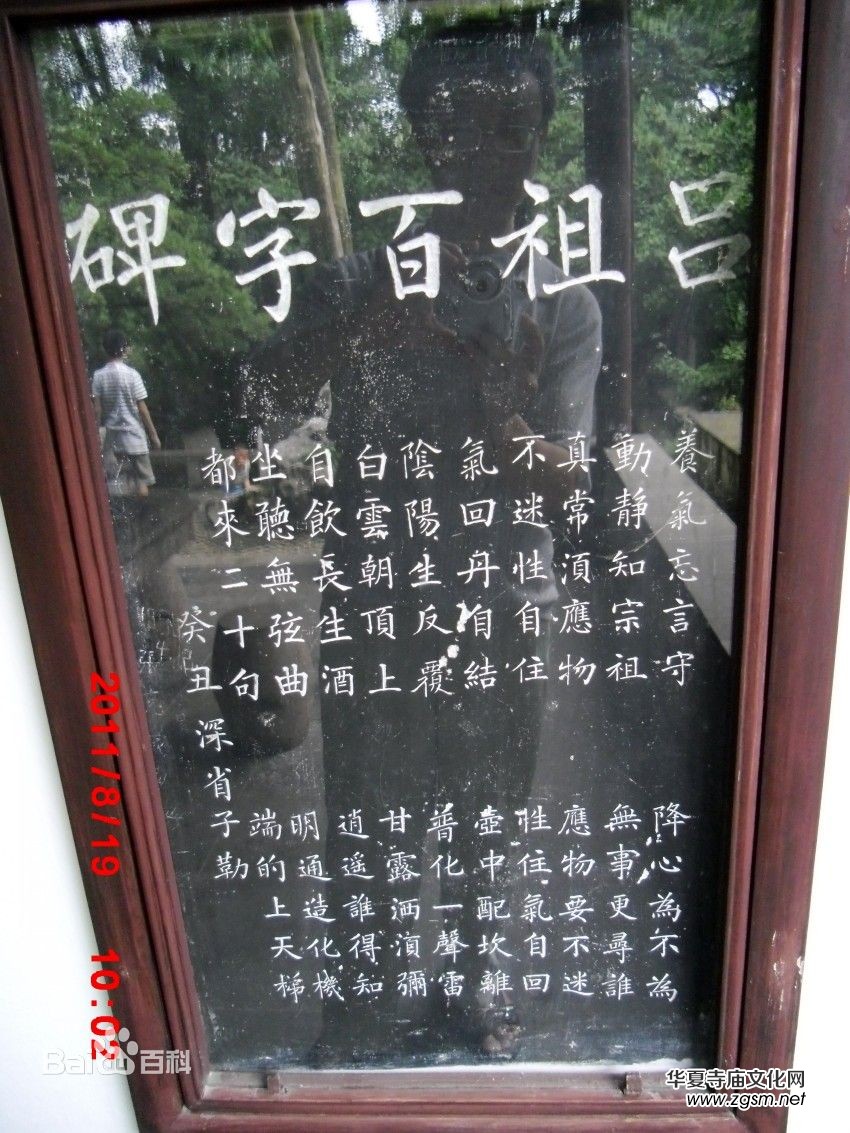 吕祖百字碑
養氣忘言守 降心為不為
動靜知宗祖 無事更尋誰
真常湏應物 應物要不迷
不迷性自住 性住氣自回
氣回丹自結 壺中配坎離
陰陽生反覆 普化一聲雷
白雲朝頂上 甘露洒湏彌
自飲長生酒 逍遥誰得知
坐聽無弦曲 明通造化機
都來二十句 端的上天梯
癸丑 深省子勒
2011/8/19 10:02
Baidu百科
华夏寺庙文化网
www.zgsm.net